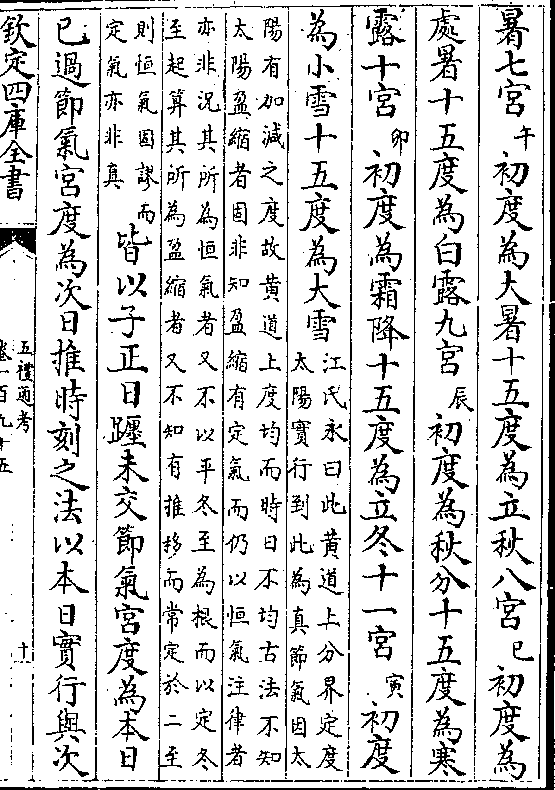 暑七宮午初度為大暑十五度為立秋八宮巳初度為
處暑十五度為白露九宮辰初度為秋分十五度為寒
露十宮卯初度為霜降十五度為立冬十一宮寅初度
為小雪十五度為大雪江氏永曰此黄道上分界定度
太陽實行到此為真節氣因太
陽有加減之度故黄道上度均而時日不均古法不知
太陽盈縮者固非知盈縮有定氣而仍以恒氣注律者
亦非況其所為恒氣者又不以平冬至為根而以定冬
至起算其所為盈縮者又不知有推移而常定於二至
則恒氣固謬而
定氣亦非真皆以子正日躔未交節氣宮度為本日
已過節氣宮度為次日推時刻之法以本日實行與次
欽定四庫全書
五禮通考
卷一百九十五
十一